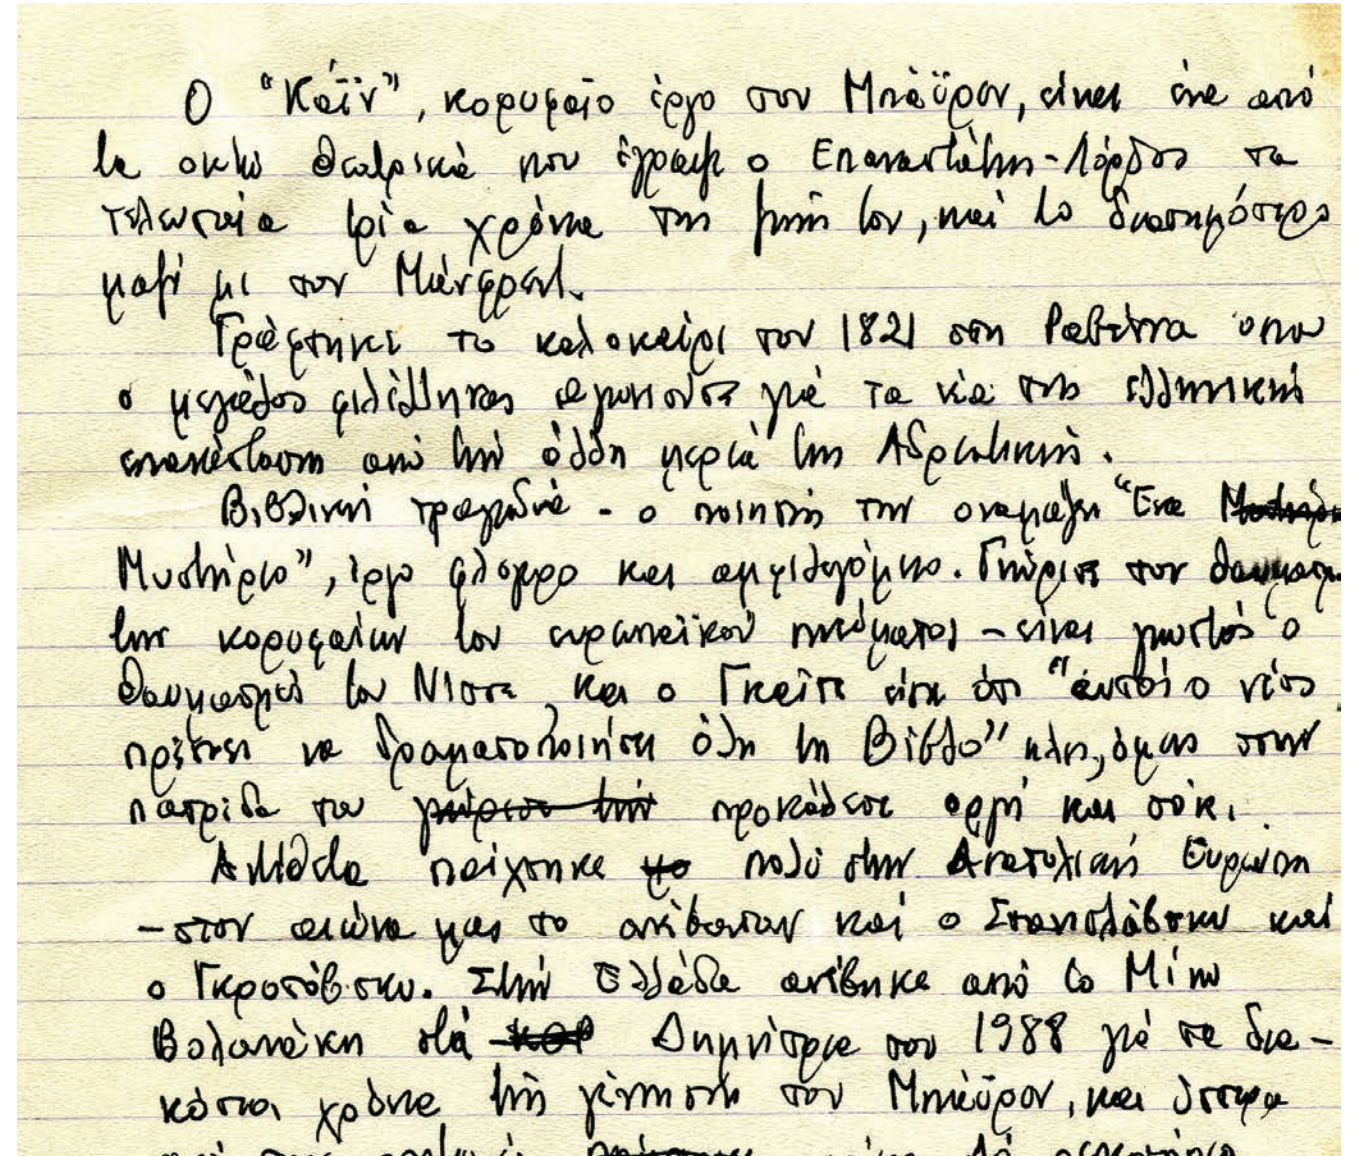 Ο "Κάϊν", κορυφαίο έργο του Μπάϋρον, είναι ένα από
τα οκτώ θεατρικά που έγραψε ο Επαναστάτης-Λόρδος τα
τελευταία τρία χρόνια της ζωής του, καί το διασημότερο
μαζί με τον Μάνφρεντ.
Γράφτηκε το καλοκαίρι του 1821 στη Ραβέννα όπου
ο μεγάλος φιλέλληνας αγωνιούσε γιά τα νέα της ελληνικής
επανάστασης από τήν άλλη μεριά της Αδριατικής.
Βιβλική τραγωδία - ο ποιητής την ονομάζει "Ένα
Μυστήριο", έργο φλογερο και αμφιλεγόμενο. Γνώρισε τον θαυμασμό
των κορυφαίων του ευρωπαϊκού πνεύματος - είναι γνωστός ο
θαυμασμός του Νίτσε, και ο Γκαίτε είπε ότι "αυτός ο νέος
πρέπει να δραματοποιήσει όλη τη Βίβλο" κλπ, όμως στην
πατρίδα του γνώρισε τήν προκάλεσε οργή και σόκ.
Αντίθετα παίχτηκε πολύ στην Ανατολική Ευρώπη
- στον αιώνα μας το ανέβασαν καί ο Στανισλάβσκυ καί
ο Γκροτόβσκυ. Στήν Ελλάδα ανέβηκε από το Μίνω
Βολανάκη στά Δημήτρια του 1988 γιά τα δια-
κόσια χρόνια τής γέννησης του Μπάϋρον, και ύστερα